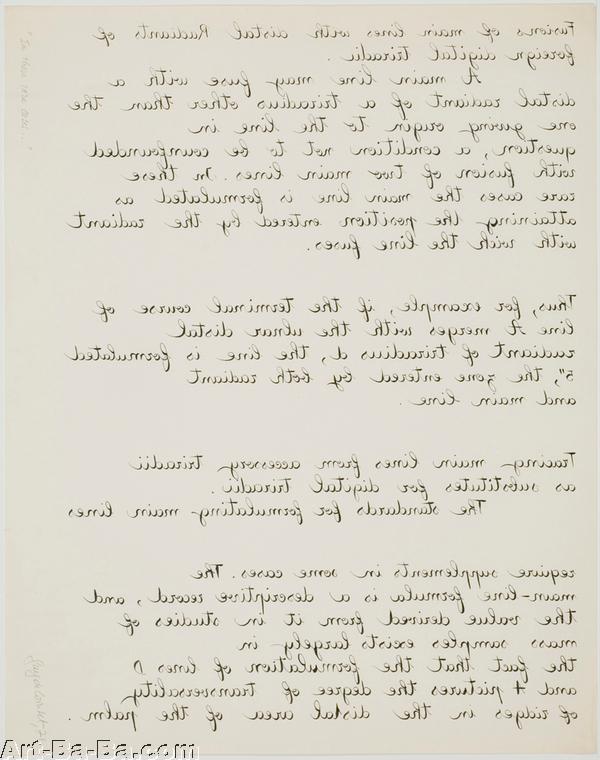 Fusions of main lines with distal Radiants of
foreign digital triradii.
A main line may fuse with a
distal radiant of a triradius other than the
one giving origin to the line in
question, a condition not to be counfounded
with fusion of two main lines. In these
rare cases the main line is formulated as
attaining the position entered by the radiant
with wich the line fuses.
Thus, for example, if the terminal course of
line A merges with the ulnar distal
radiant of triradius d, the line is formulated
5", the zone entered by both radiant
and main line.
Tracing main lines from accessory triradii
as substitutes for digital triradii.
The standards for formulating main lines
require supplements in some cases. The
main-line formula is a descriptive record, and
the value derived from it in studies of
mass samples exists largely in
the fact that the formulation of lines D
and A pictures the degree of transversality
of ridges in the distal area of the palm.
"In these rare cases..."
Art-Ba-Ba.com